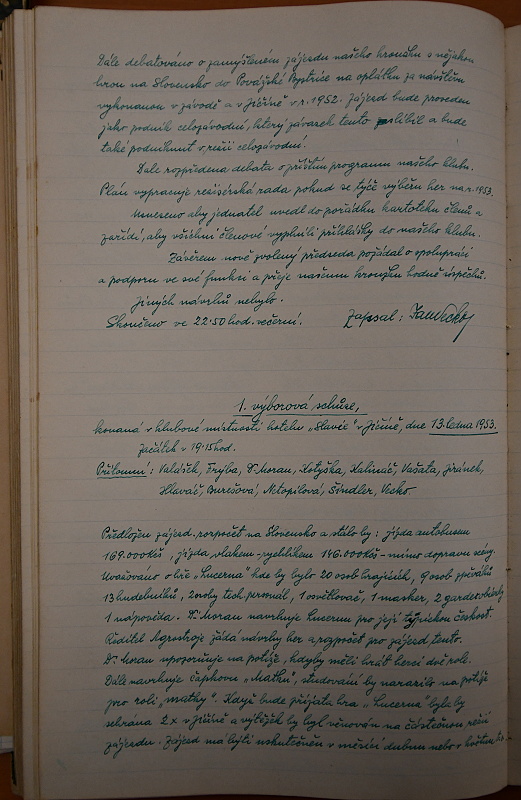 Dále debatováno o zamýšleném zájezdu našeho kroužku s nějakou
hrou na Slovensko do Povážské Bystrice na oplátku za návštěvu
vykonanou v závodě a v Jičíně v r. 1952. Zájezd bude proveden
jako podnik celozávodní, který závazek tento slíbil a bude
také podniknut v režii celozávodní.
Dále rozpředena debata o příštím programu našeho klubu.
Plán vypracuje režisérská rada pokud se týče výběru her na r. 1953.
Usneseno aby jednatel uvedl do pořádku kartoteku členů a
zařídí, aby všichni členové vyplnili přihlášky do našeho klubu.
Závěrem nově zvolený předseda požádal o spolupráci
a podporu ve své funkci a přeje našemu kroužku hodně úspěchů.
Jiných návrhů nebylo.
Skončeno ve 22.50 hod. večerní. Zapsal:
1. výborová schůze,
konaná v klubové místnosti hotelu "Slavie" v Jičíně, dne 13. ledna 1953.
Začátek v 19.15 hod.
Přítomní: Valášek, Frýba, Dr Moran, Kotyška, Kalinič, Vašata, Jiránek,
Hlaváč, Burešová, Netopilová, Šindler, Vecko.
Předložen zájezd. rozpočet na Slovensko a stálo by: jízda autobusem
169.000 Kčs, jízda vlakem-rychlíkem 146.000 Kčs - mimo dopravu scény.
Uvažováno o hře "Lucerna" kde by bylo 20 osob hrajících, 9 osob zpěváků
13 hudebníků, 2 osoby tech. personál, 1 osvětlovač, 1 masker, 2 garderobiérky
1 nápověda. Dr. Moran navrhuje Lucernu pro její typickou českost.
Ředitel Agrostroje žádá návrhy her a rozpočet pro zájezd tento.
Dr. Moran upozorňuje na potíže, kdyby měli hráti herci dvě role.
Dále navrhuje Čapkovu "Matku", studování by naráželo na potíže
pro roli "matky". Když bude přijata hra "Lucerna" byla by
sehrána 2 x v Jičíně a výtěžek by byl věnován na částečnou režii
zájezdu. Zájezd má býti uskutečněn v měsíci dubnu nebo v květnu